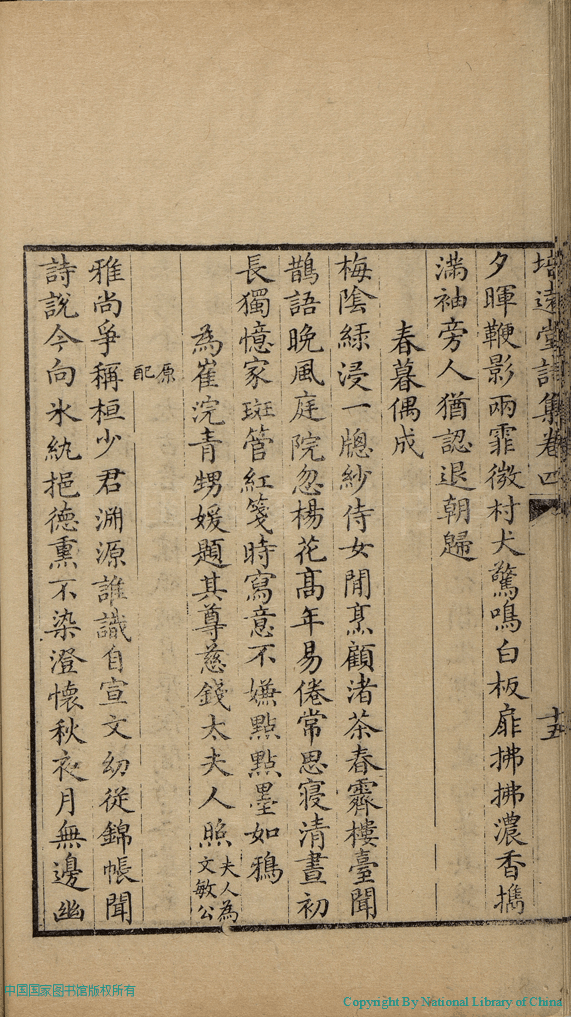 培遠堂詩集卷四
十五
夕暉鞭影兩霏微村犬驚鳴白板扉拂拂濃香攜
滿袖旁人猶認退朝歸
春暮偶成
梅陰綠浸一牕紗侍女閒烹顧渚茶春霽樓臺聞
鵲語晚風庭院忽楊花高年易倦常思寢清晝初
長獨憶家斑管紅箋時寫意不嫌點點墨如鴉
為崔浣青甥媛題其尊慈錢太夫人照夫人為
文敏公
原
配
雅尚爭稱桓少君淵源誰識自宣文幼從錦帳聞
詩說今向氷紈挹德熏不染澄懷秋夜月無邊幽
中国国家图书馆版权所有
Copyright By National Library of China